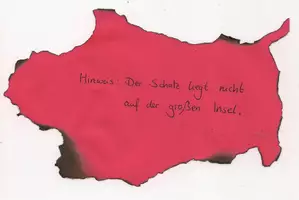 Hinweis: Der Schatz liegt nicht
auf der großen Insel.